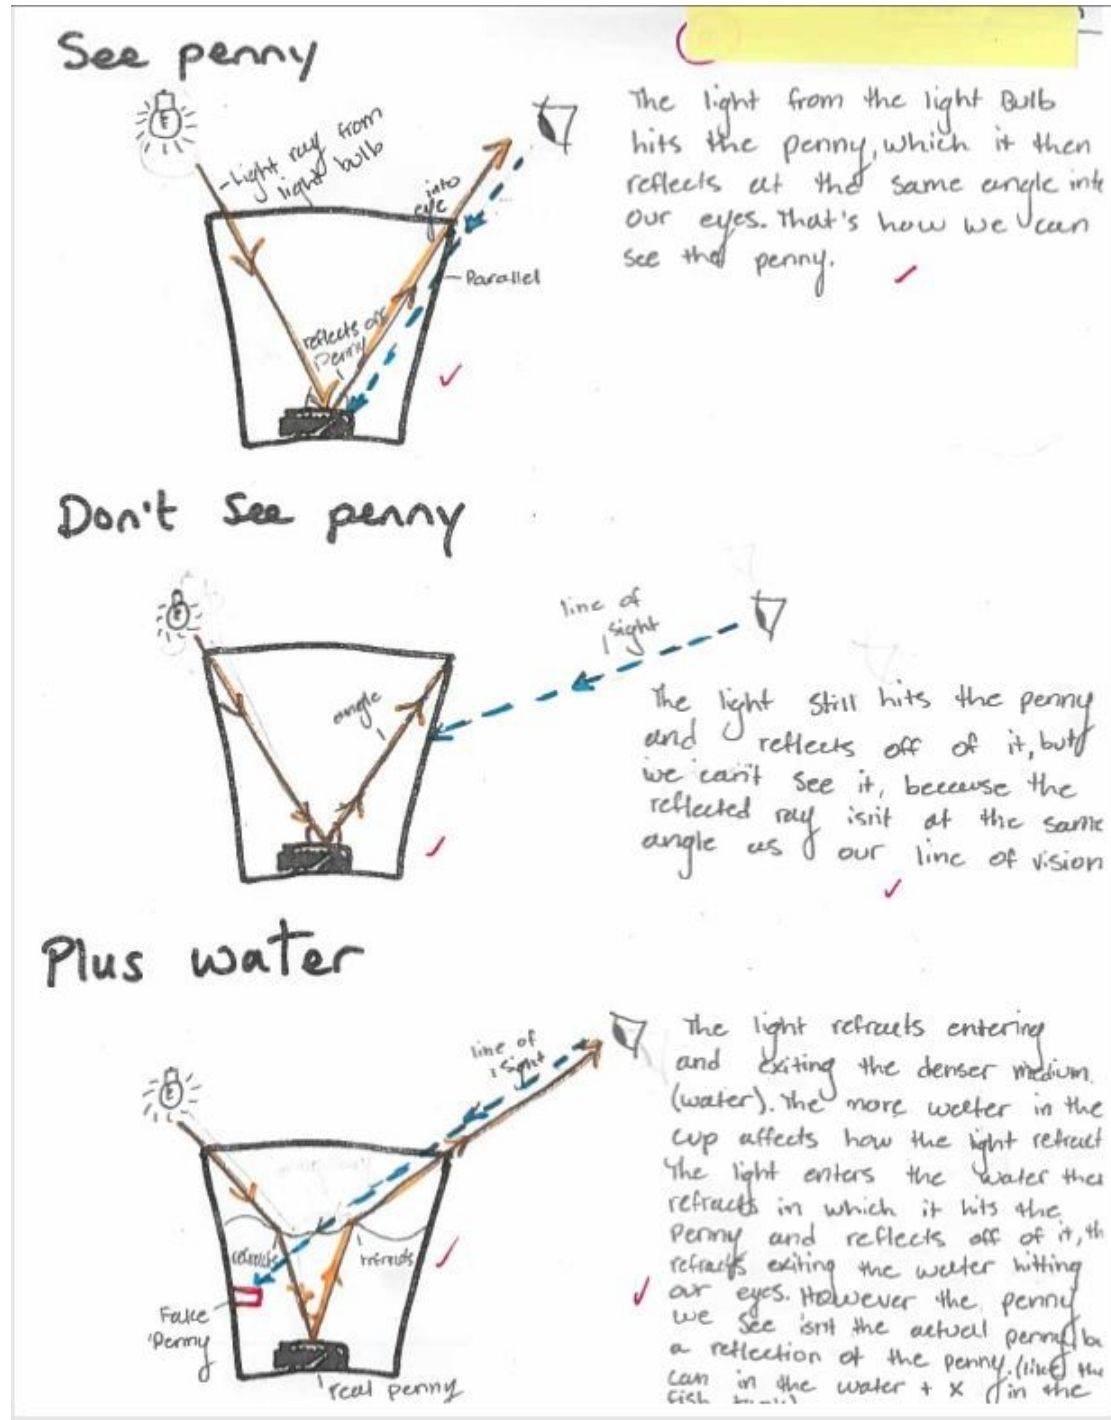 See penny
Light ray from
light bulb
into
eye
Parallel
reflects off
Penny
The light from the light Bulb
hits the penny, which it then
reflects at the same angle into
our eyes. That's how we can
see the penny.
Don't see penny
line of
sight
angle
The light still hits the penny
and reflects off of it, but
we can't see it, because the
reflected ray isn't at the same
angle as our line of vision
Plus water
line of
sight
refracts
refracts
Fake
Penny
real penny
The light refracts entering
and exiting the denser medium.
(water). The more water in the
cup affects how the light refract
The light enters the water then
refracts in which it hits the
Penny and reflects off of it, th
refracts exiting the water hitting
our eyes. However the penny
we see isn't the actual penny, bu
a reflection of the penny. (like the
can in the water + x in the
fish